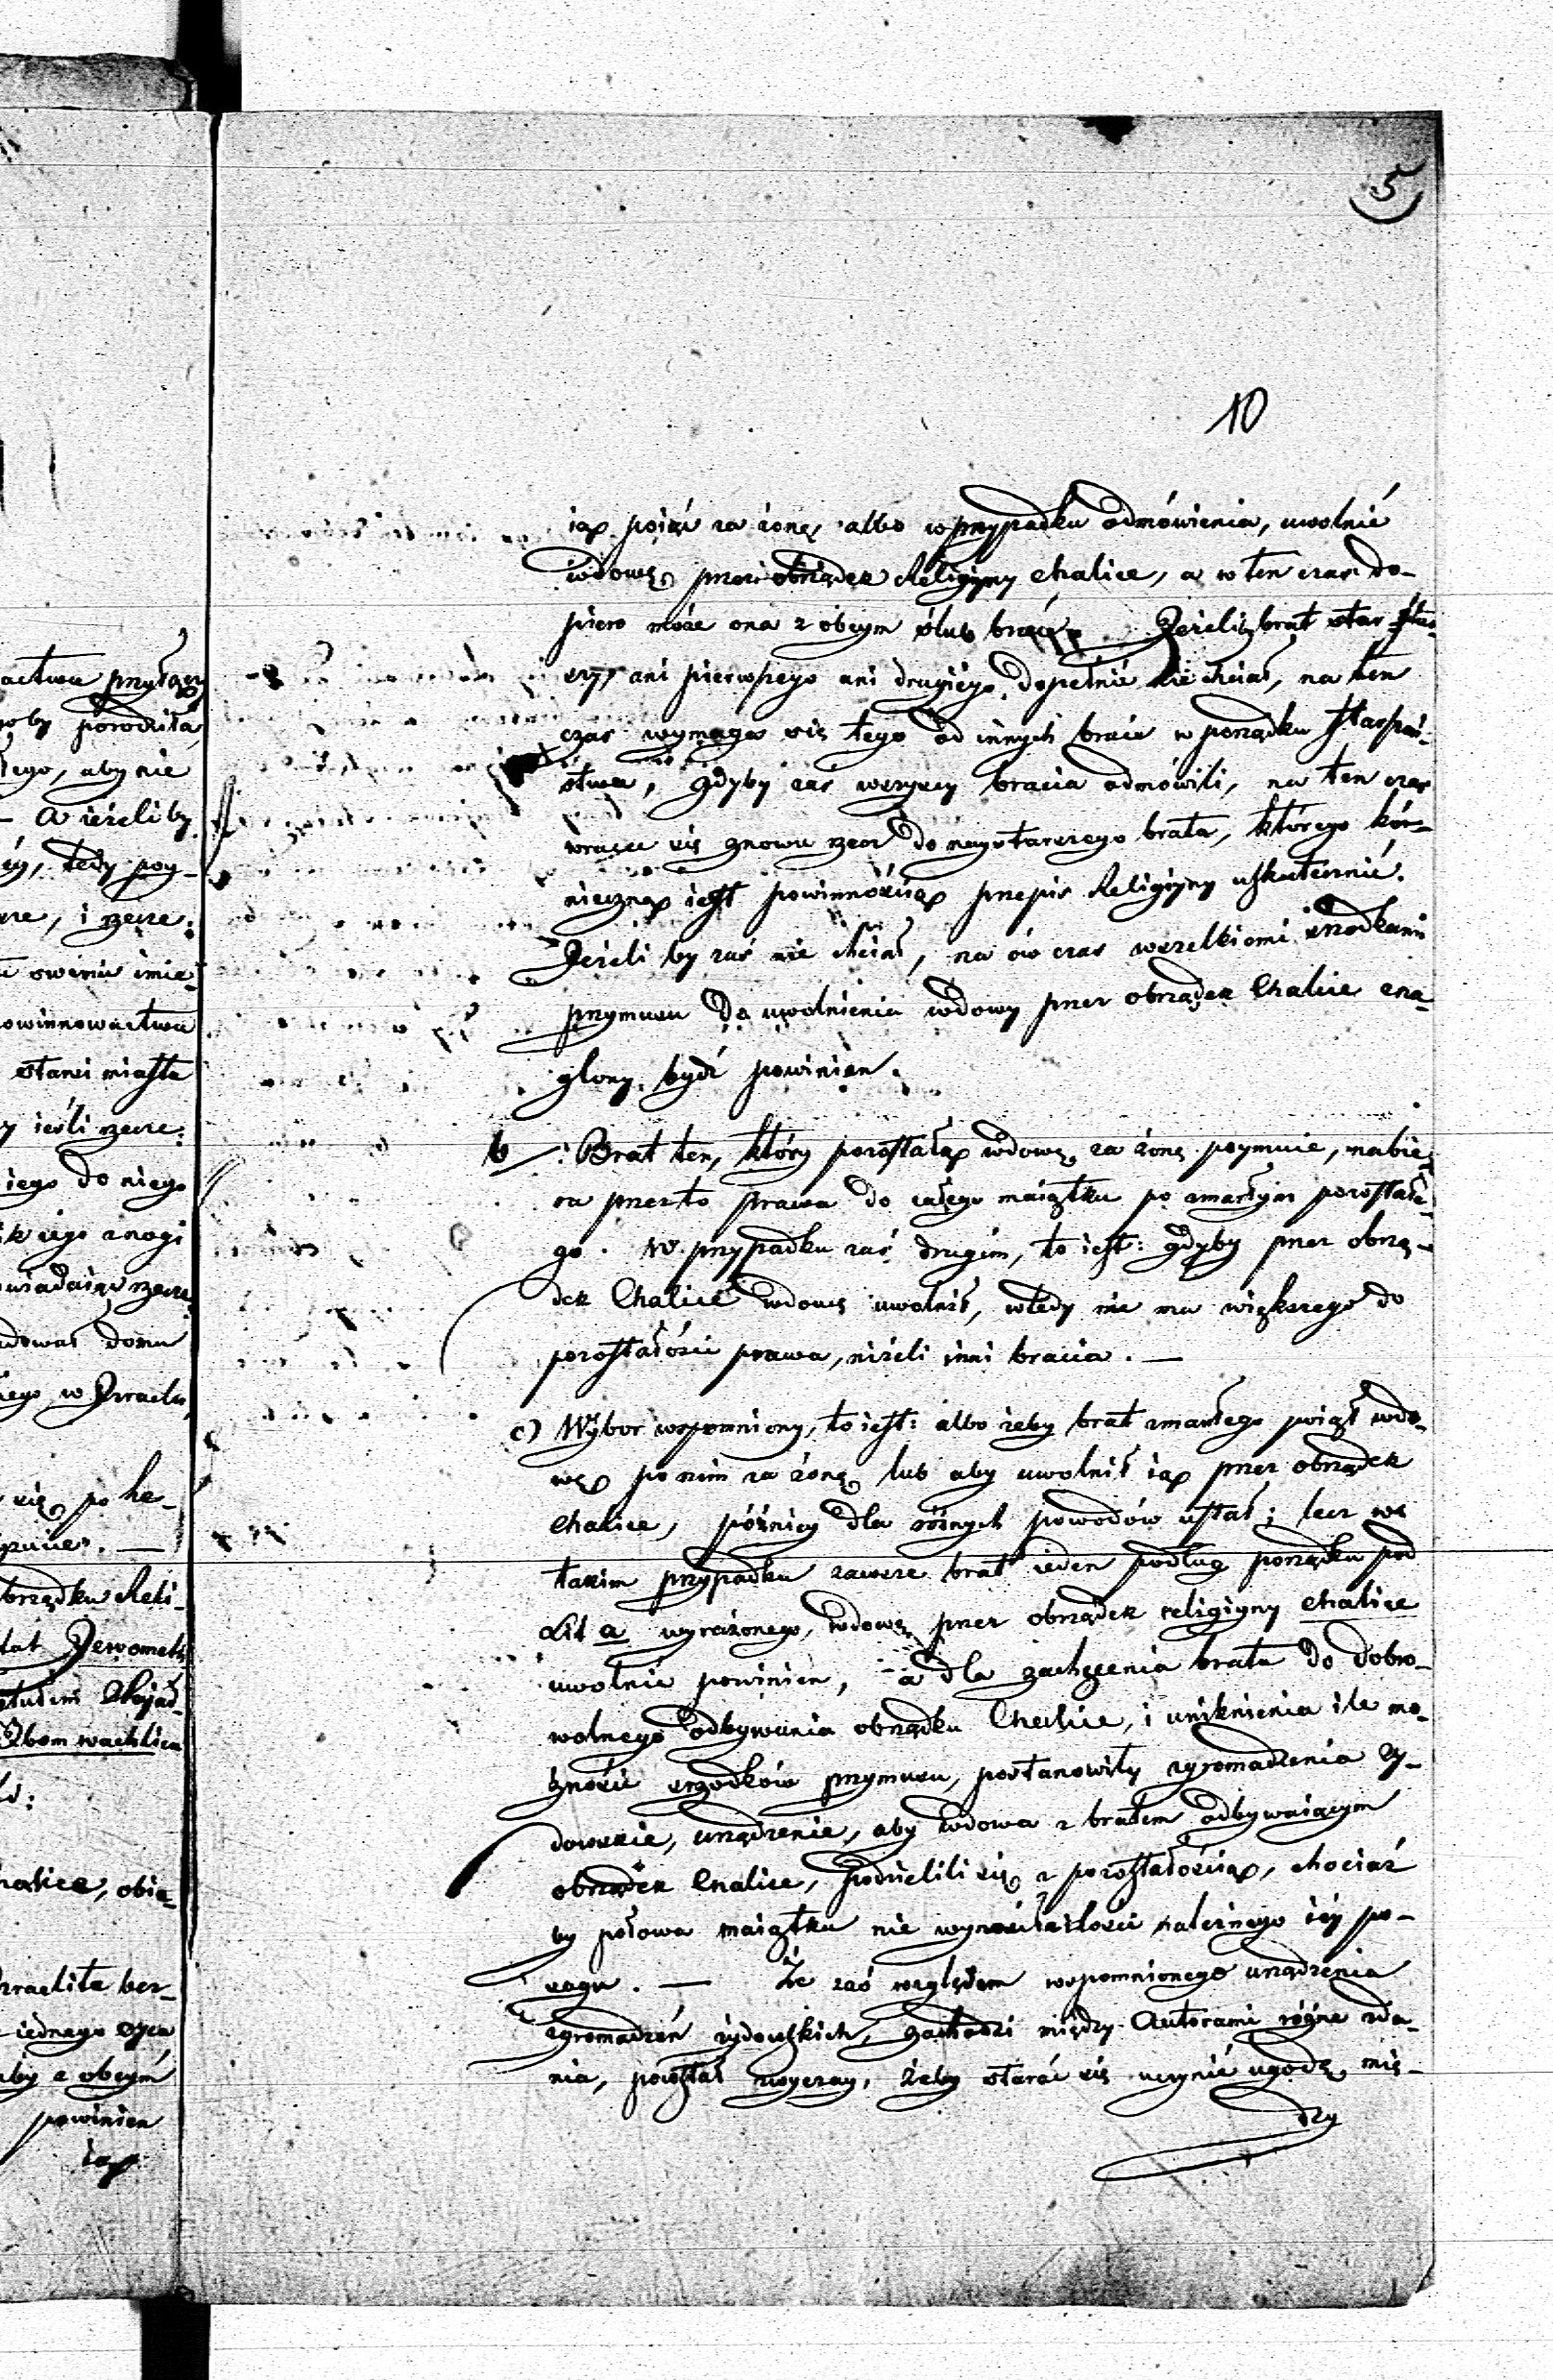 5
10
ią poiąć za żonę albo w przypadku odmówienia, uwolnić
wdowę przez obrządek Religijny chalice, a w ten czas do-
piero może ona z obcym ślub brać. Jeżeli brat star-
szy ani pierwszego ani drugiego dopełnić nie chciał, na ten
czas wymaga się tego od innych braci w porządku starszeń-
stwa, gdyby zaś wszyscy bracia odmówili, na ten czas
wraca się znowu rzecz do naystarszego brata, którego kó-
nieczną iest powinnością przepis Religijny uskutecznić.
Jeżeli by zaś nie chciał, na ów czas wszelkiemi śrzodkami
przymusu do uwolnienia wdowy przez obrządek Chalice zna-
glony bydź powinien.
b/: Brat ten, który pozostałą wdowę za żonę poymuie, nabie-
ra przez to prawa do całego maiątku po zmarłym pozostałe-
go. W przypadku zaś drugim, to iest: gdyby przez obrzą-
dek Chalice wdowę uwolnił, wtedy nie ma większego do
pozostałości prawa, niżeli inni bracia. —
c) Wybor wspomniony, to iest: albo żeby brat zmarłego poiął wdo-
wę po nim za żonę lub aby uwolnił ią przez obrządek
chalice, późniey dla różnych powodów ustał; lecz we
takim przypadku zawsze brat ieden podług porządku pod
Lit a wyrażonego, wdowę przez obrządek religijny chalice
uwolnić powinien, a dla zachęcenia brata do dobro-
wolnego odbywania obrządku Chalice, i uniknienia ile mo-
żności śrzodków przymusu, postanowiły zgromadzenia ży-
dowskie, urządzenie, aby wdowa z bratem odbywaiącym
obrządek Chalice, podzielili się z pozostałością, chociaż
by połowa maiątku nie wynosiła ilości należnego iéy po-
sagu. — Że zaś względem wspomnionego urządzenia
zgromadzeń żydowskich, zachodzi między Autorami różne zda-
nia, powstał zwyczay, żeby starać się uczynić ugodę mię-
dzy
actwu przyłączy
by porodziła
ego, aby nie
A ieżeli by
éy, tedy poy-
i rzecze:
imie
owinnowactwa
starsi miasta
ieśli rzecze:
iego do niego
iego z nogi
domu
iego w Jzraelu
się po he-
brządku Reli-
Jewometh
halice, obią-
zraelita bez-
iednego oyca
by z obcym
powinien
ią